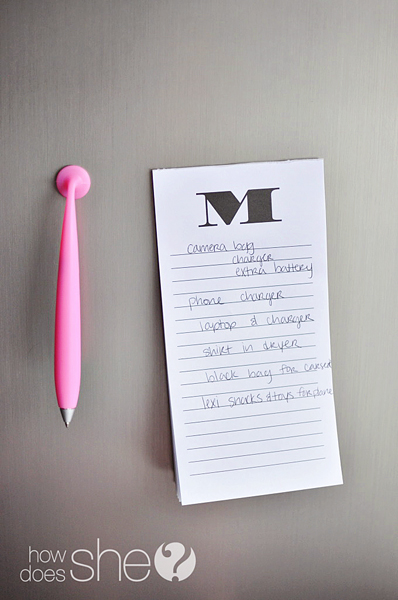 M
camera bag
charger
extra battery
phone charger
laptop & charger
shirt in dryer
black bag for
lexi snacks & toys for plane
how does she?